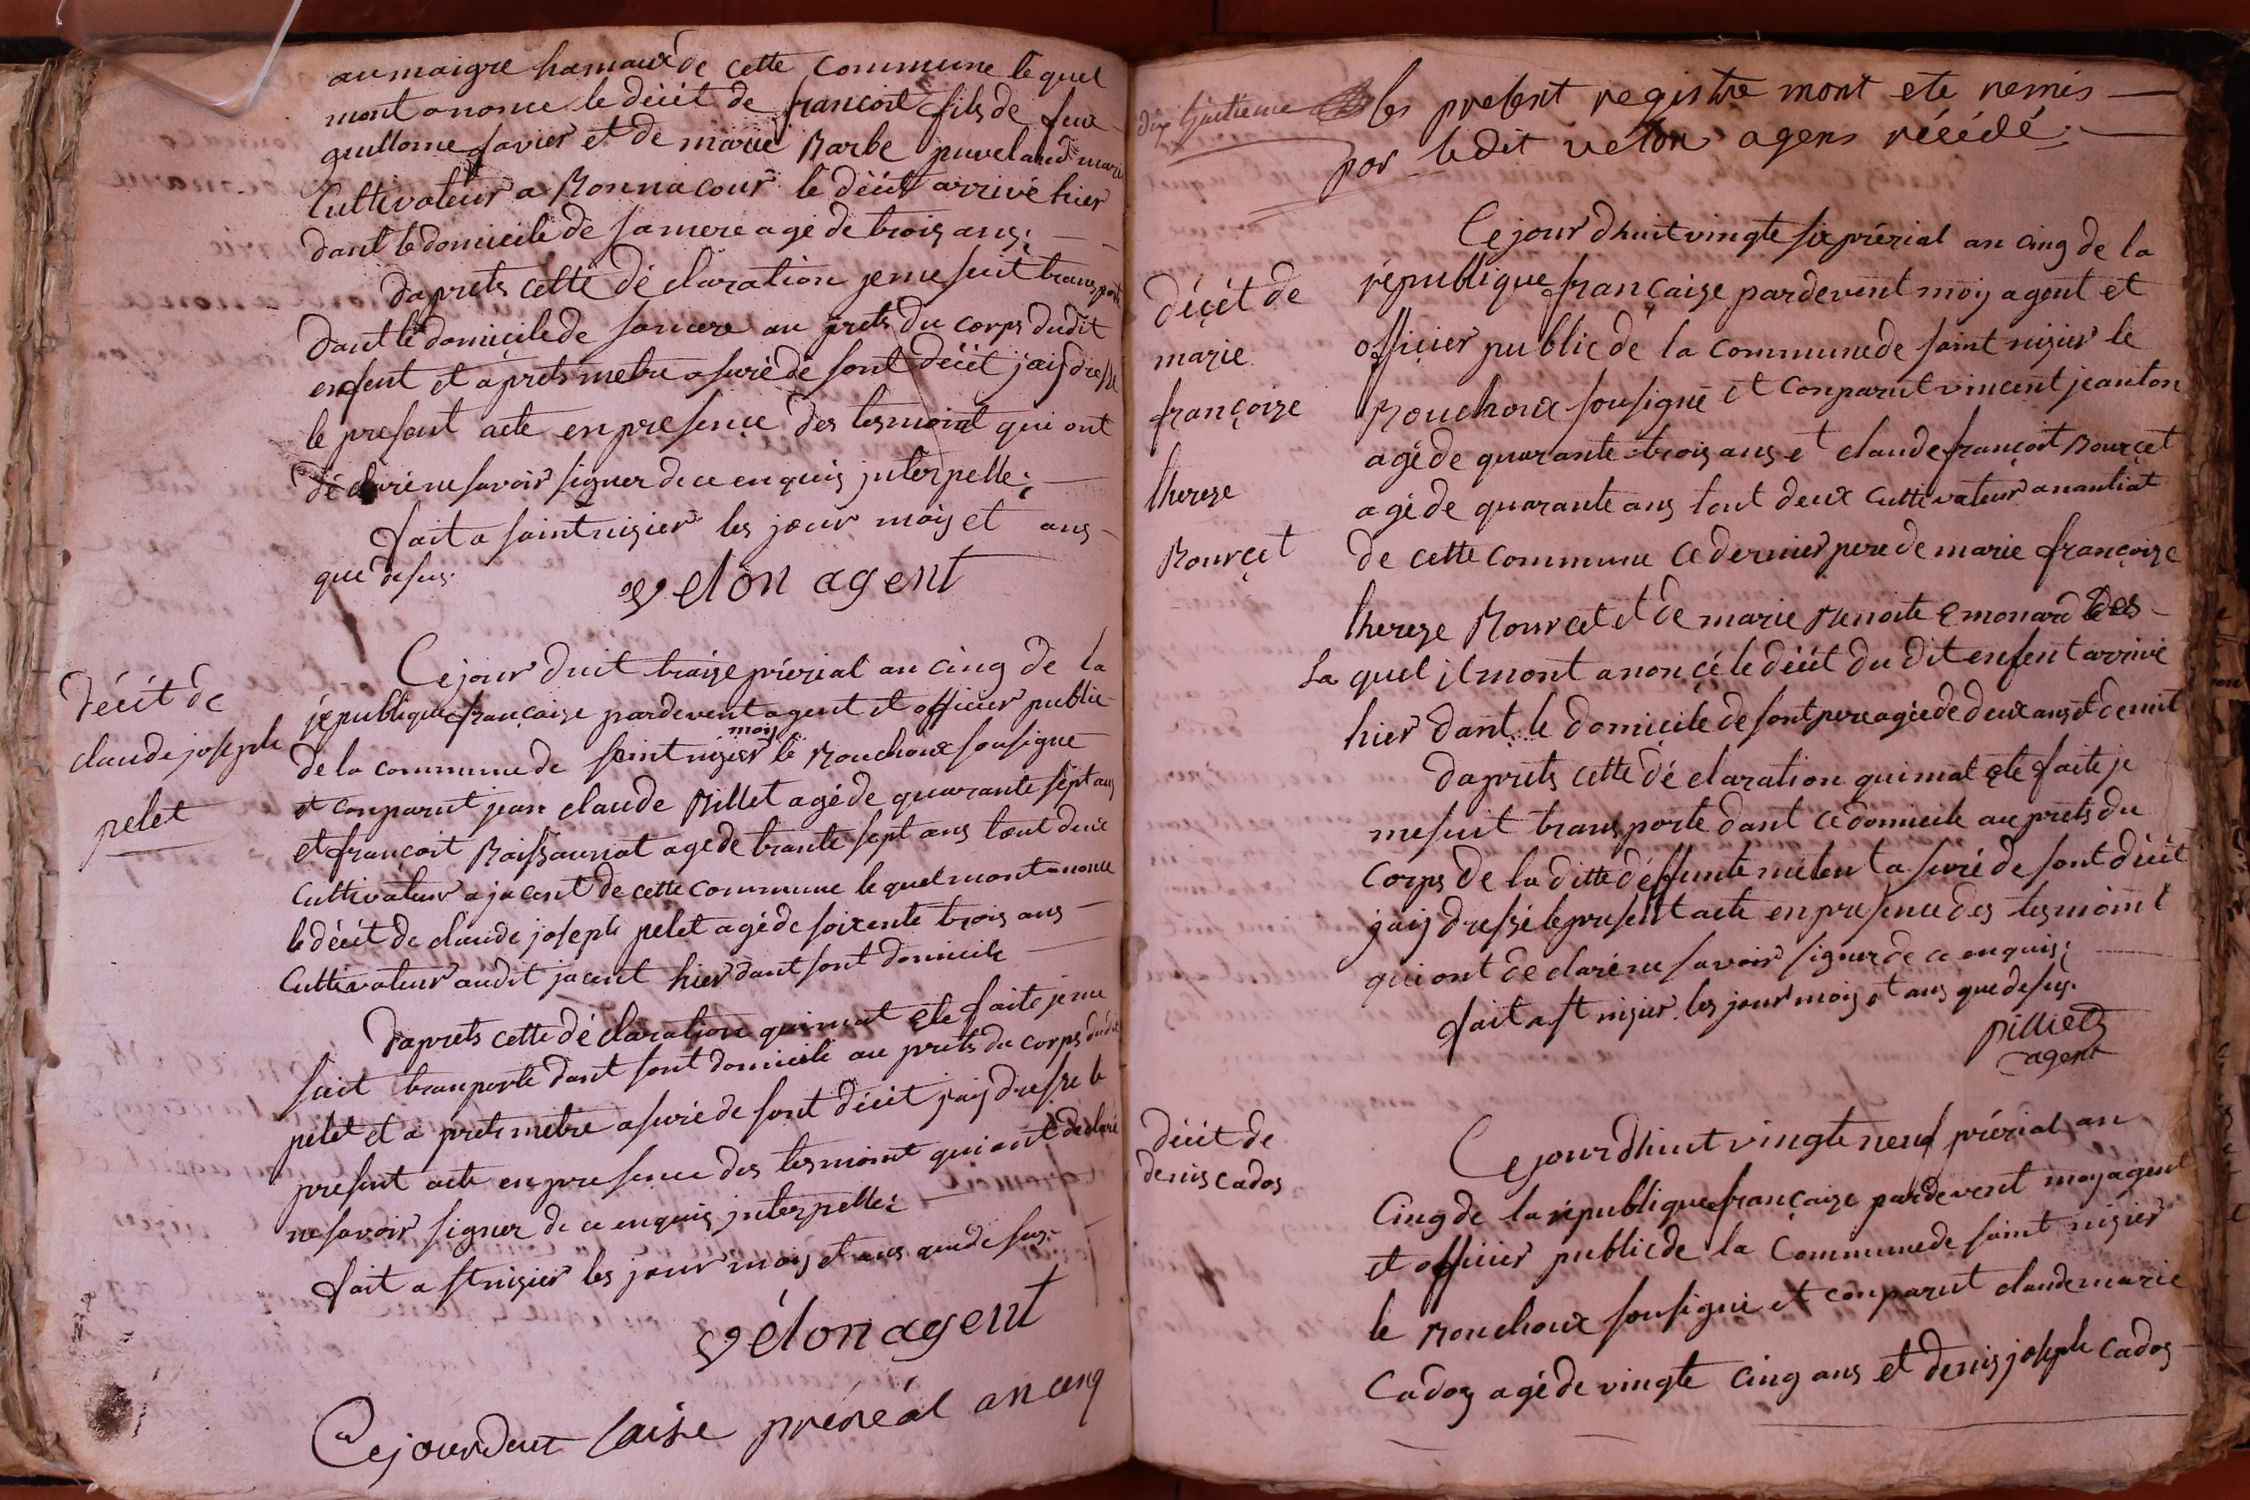 au maigre hamaux de cette commune lequel
mont anonce le décit de francoit fils de feux
guillome favier et de marie Barbe
Cultivateur a Bonnacour le décit arrivé hier
dant le domicile de sa mere age de trois ans.
daprets cette déclaration je me suit transporté
dant le domicile de sa mere au prets du corps dudit
enfent et aprets metre asuré de sont décit jaij dressé
le presant acte en presence des tesmoint qui ont
déclaré ne savoir signer de ce enquis jnterpellé;
fait a saint nisier les jour mois et ans
que desus.
velon agent
décit de
claude joseph
pelet
Ce jour duit traize prérial an cinq de la
république françaize pardevent moij agent et officier public
de la commune de saint nizier le Bouchoux sousigné
et conparut jean claude Billet agé de quarante sept ans
et françoit Boissaunat agé de trante sept ans tout deux
Cultivateur a jacent de cette commune lequel mont anoncé
le décit de claude joseph pelet agé de soixente trois ans
Cultivateur audit jacent hier dant sont domicile
daprets cette déclaration qui mat ete faite je me
suit tranporté dant sont domicile au prets du corps dudit
pelet et a prets metre asuré de sont décit jaij dressé le
present acte en presence des tesmoint qui ont déclaré
ne savoir signer de ce enquis jnterpellé;
fait a st nizier les jour mois et ans que desus.
vélon agent
Ce jourduit saise préreal an cinq
dix huitieme les present registre mont ete remis
par ledit velon agens
décét de
marie
françoize
thereze
Bourcet
Ce jour dhuit vingte six prérial an cinq de la
république françaize pardevent moij agent et
officier public de la commune de saint nizier le
Bouchoux sousigné et conparut vincent jeanton
agé de quarante trois ans et claude françoit Bourcet
agé de quarante ans tout deux cultivateur a nantiat
de cette commune ce dernier pere de marie françoize
thereze Bourcet et de marie Benoite Emonard
la quel il mont anoncé le décit du dit enfent arrivé
hier dant le domicile de sont pere agée de deux ans et demit
daprets cette déclaration qui mat eté faite je
me suit transporté dant ce domicile au prets du
corps de la ditte déffunte asuré de sont décit
jaij dressé le present acte en presence des tesmoint
qui ont declaré ne savoir signer de ce enquis;
fait a st nizier les jour mois et ans que desus.
pilliet
agent
décit de
denis cados
Ce jourdhuit vingte neuf prérial an
Cinq de la république françaize pardevent moy agent
et officier public de la Commune de saint nizier
le Bouchoux sousigné et conparut claude marie
Cadoz agé de vingte cinq ans et denis joseph cados